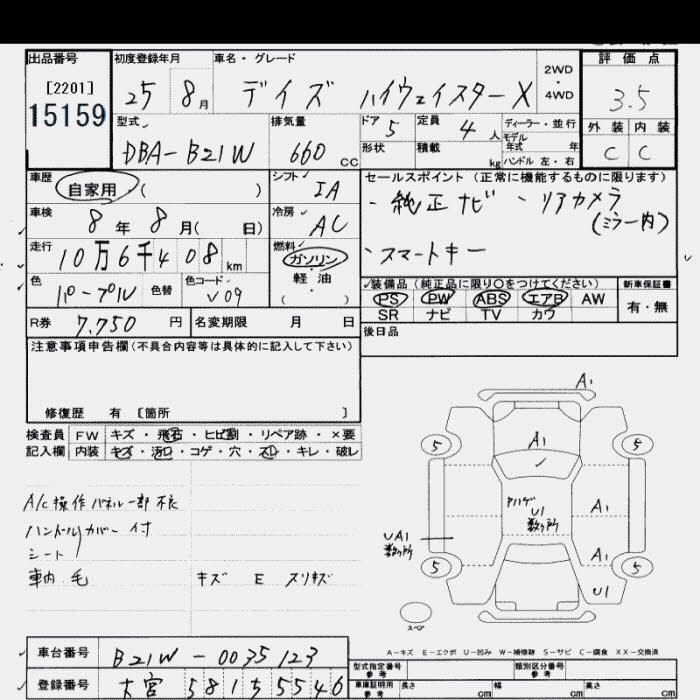 出品番号 初度登録年月 車名・グレード 2WD・4WD 評価点
[2201]
15159
25 8月 デイズ ハイウェイスターX 3.5
型式 排気量 ドア 定員 ディーラー・並行 外装 内装
DBA-B21W 660 CC 5 4人 モデル年式 年 C C
形状 積載 kg ハンドル 左・右
車歴 自家用・( ) シフト IA セールスポイント(正常に機能するものに限ります)
・純正ナビ ・リアカメラ
(ミラー内)
・スマートキー
車検 8年 8月( 日) 冷房 AC
走行 10万6千408km 燃料 ガソリン・軽油 ( )
色 パープル 色替 色コード V09
装備品(純正品に限り○をつけてください) 新車保証書
PS PW ABS エアB AW 有・無
SR ナビ TV カワ
R券 7,750円 名変期限 月 日 後日品
注意事項申告欄(不具合内容等は具体的に記入して下さい)
修復歴 有 [箇所 ]
検査員 FW キズ・飛石・ヒビ割・リペア跡・×要
記入欄 内装 キズ・汚れ・コゲ・穴・スレ・キレ・破レ
A/C操作パネル一部不良
ハンドルカバー付
シート
車内 毛 キズ E スリキズ
A1
A1
5 5
A1
UA1
数ヶ所
U1
数ヶ所
A1
5 5
U1
スペア
A-キズ E-エクボ U-凹み W-補修跡 S-サビ C-腐食 XX-交換済
車台番号 B21W-0035123
登録番号 大宮 581 5546
型式指定番号 参考 類別区分番号 参考
車庫証明用 参考 長さ cm 幅 cm 高さ cm